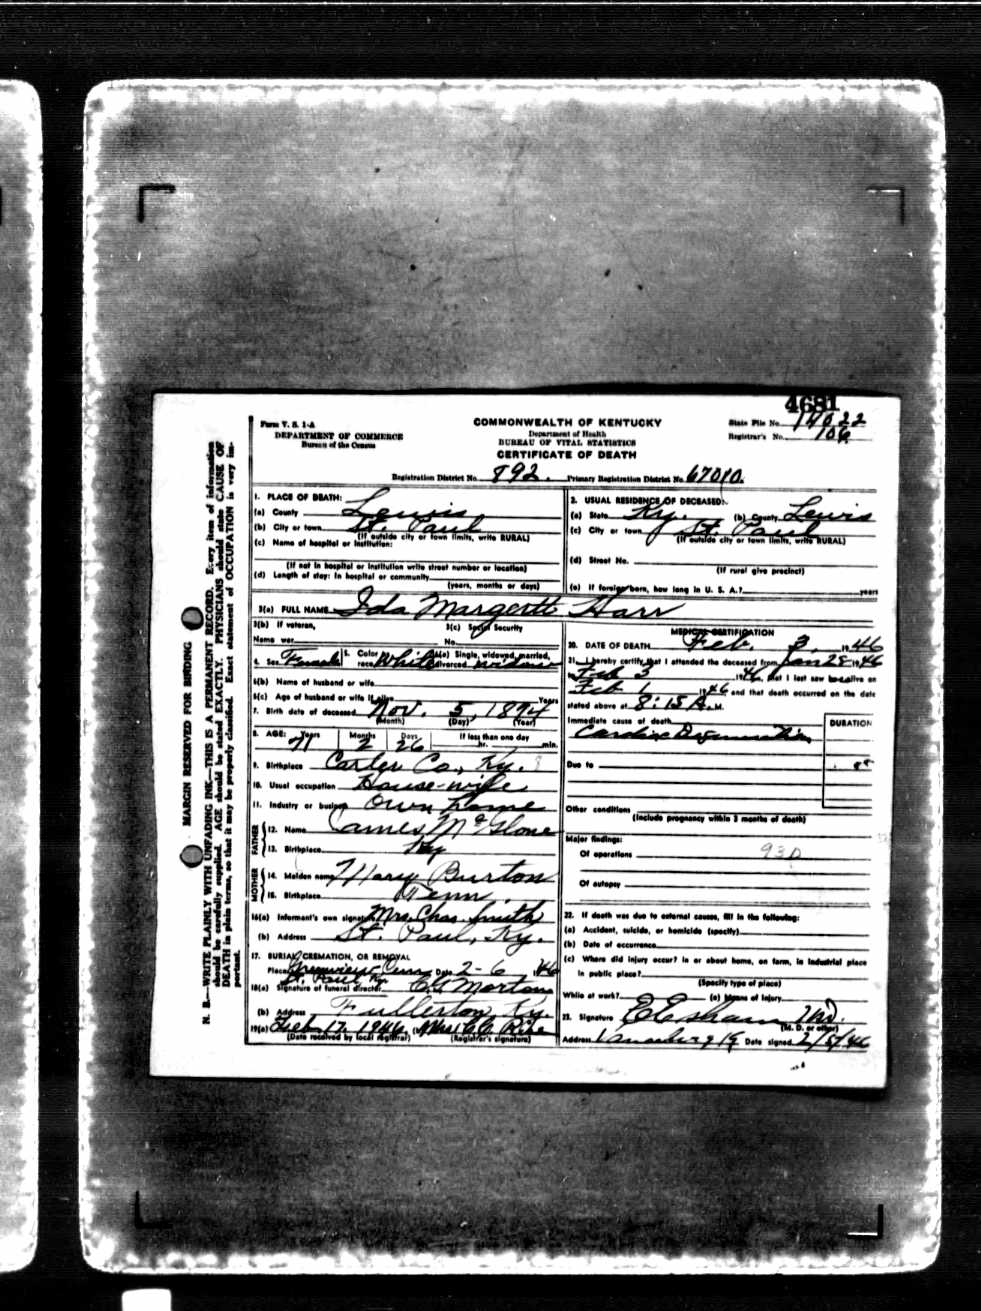 4681
Form V. S. 1-A
DEPARTMENT OF COMMERCE
Bureau of the Census
COMMONWEALTH OF KENTUCKY
Department of Health
BUREAU OF VITAL STATISTICS
CERTIFICATE OF DEATH
State File No. 14022
Registrar's No. 106
Registration District No. 892. Primary Registration District No. 67010.
MARGIN RESERVED FOR BINDING
N. B.—WRITE PLAINLY WITH UNFADING INK—THIS IS A PERMANENT RECORD. Every item of information
should be carefully supplied. AGE should be stated EXACTLY. PHYSICIANS should state CAUSE OF
DEATH in plain terms, so that it may be properly classified. Exact statement of OCCUPATION is very im-
portant.
1. PLACE OF DEATH:
(a) County Lewis
(b) City or town St. Paul
(If outside city or town limits, write RURAL)
(c) Name of hospital or institution:
(If not in hospital or institution write street number or location)
(d) Length of stay: In hospital or community
(years, months or days)
2. USUAL RESIDENCE OF DECEASED:
(a) State Ky. (b) County Lewis
(c) City or town St. Paul
(If outside city or town limits, write RURAL)
(d) Street No.
(If rural give precinct)
(e) If foreign born, how long in U. S. A.? years
3(a) FULL NAME Ida Margertt Harr
3(b) If veteran, 3(c) Social Security
Name war No.
4. Sex Female 5. Color race White 6(a) Single, widowed, married, divorced widow
6(b) Name of husband or wife
6(c) Age of husband or wife if alive Years
7. Birth date of deceased Nov. 5, 1874
(Month) (Day) (Year)
8. AGE: Years Months Days If less than one day
71 2 26 hr. min.
9. Birthplace Carter Co., Ky.
10. Usual occupation House-wife
11. Industry or business Own home
FATHER
12. Name James McGlone
13. Birthplace Ky
MOTHER
14. Maiden name Mary Burton
15. Birthplace Penn.
16(a) Informant's own signature Mrs. Chas. Smith
(b) Address St. Paul, Ky.
17. BURIAL, CREMATION, OR REMOVAL
Place Cem Date 2-6 1946
St. Paul Ky
18(a) Signature of funeral director C G Morton
(b) Address Fullerton, Ky.
19(a) Feb 17, 1946 (b) Mrs. C C Rice
(Date received by local registrar) (Registrar's signature)
MEDICAL CERTIFICATION
20. DATE OF DEATH Feb. 3, 1946
21. I hereby certify that I attended the deceased from Jan 28 1946
to Feb 3 1946, that I last saw alive on
Feb 1 1946 and that death occurred on the date
stated above at 8:15 A. M.
Immediate cause of death DURATION
Cardiac Degeneration
Due to
Other conditions
(Include pregnancy within 3 months of death)
Major findings:
Of operations 93D
Of autopsy
22. If death was due to external causes, fill in the following:
(a) Accident, suicide, or homicide (specify)
(b) Date of occurrence
(c) Where did injury occur? In or about home, on farm, in industrial place
in public place?
(Specify type of place)
While at work? (e) Means of injury
23. Signature E E Sham M.D.
(M. D. or other)
Address Vanceburg Ky Date signed 2/5/46